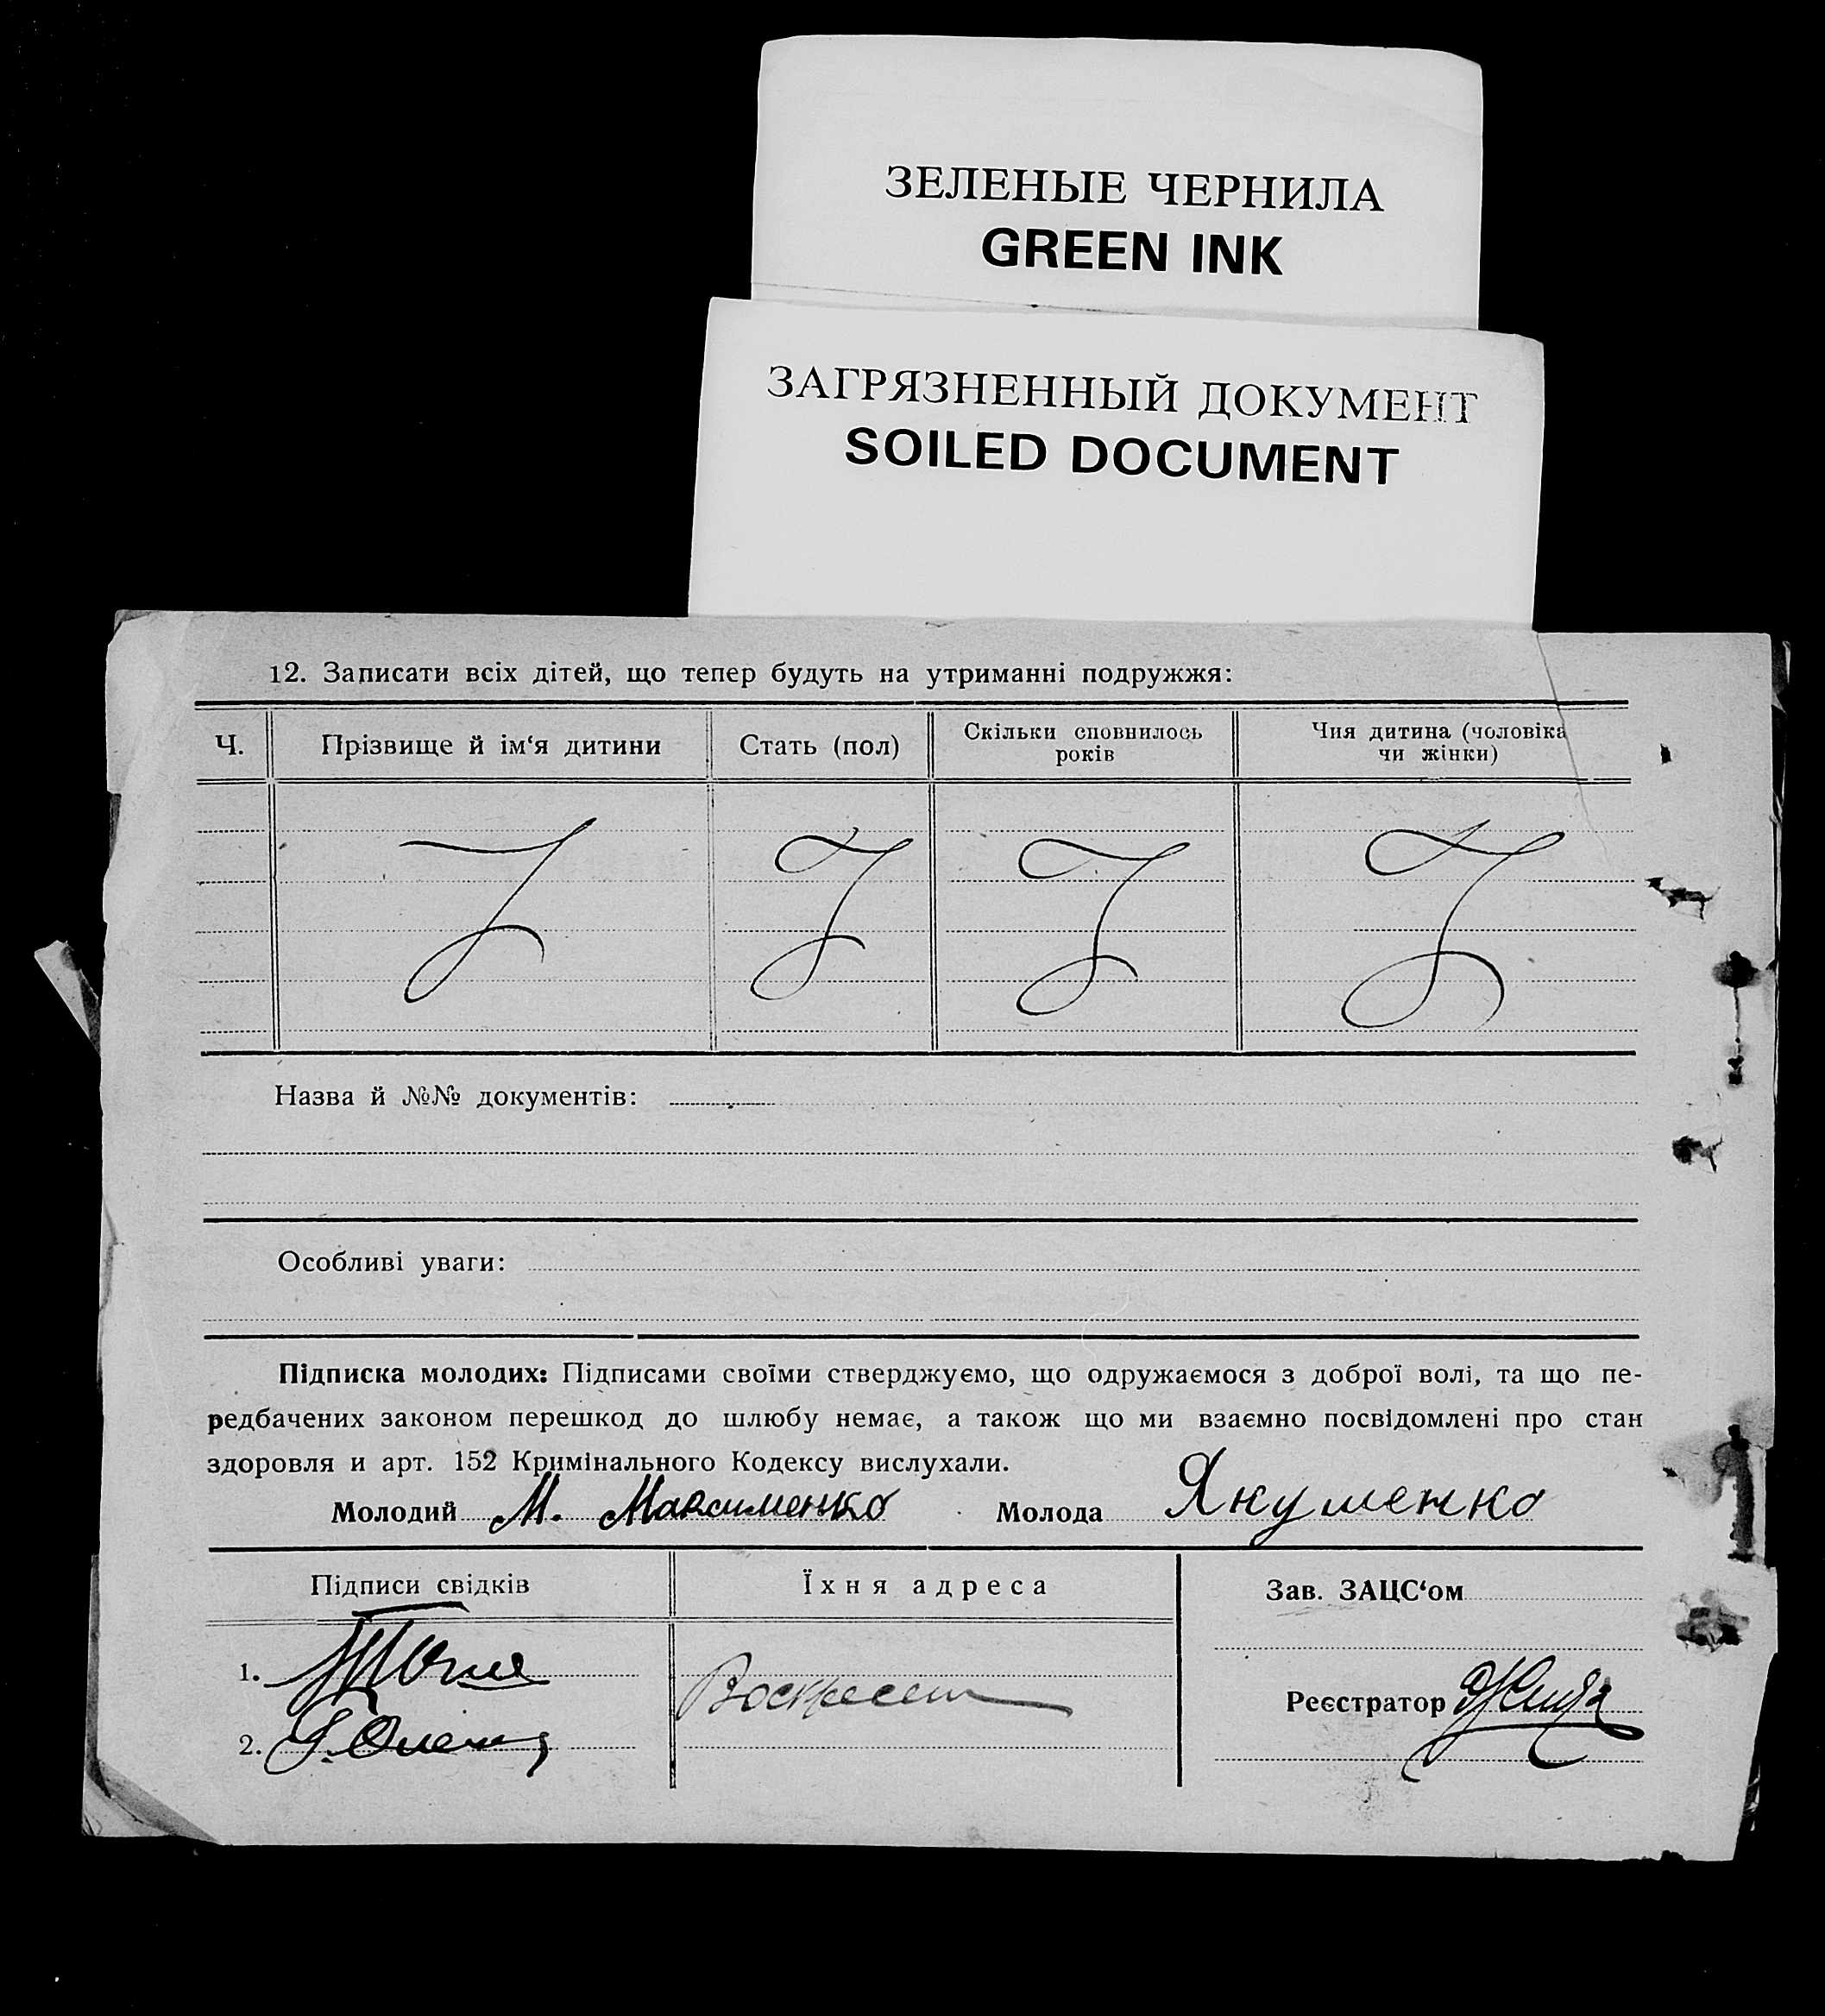 ЗЕЛЕНЫЕ ЧЕРНИЛА
GREEN INK
ЗАГРЯЗНЕННЫЙ ДОКУМЕНТ
SOILED DOCUMENT
12. Записати всіх дітей, що тепер будуть на утриманні подружжя:
Ч.
Прізвище й ім‘я дитини
Стать (пол)
Скільки сповнилось
років
Чия дитина (чоловіка
чи жінки)
Назва й №№ документів:
Особливі уваги:
Підписка молодих: Підписами своїми стверджуємо, що одружаємося з доброї волі, та що пе-
редбачених законом перешкод до шлюбу немає, а також що ми взаємно посвідомлені про стан
здоровля и арт. 152 Кримінального Кодексу вислухали.
Молодий М. Максименко Молода Якуменко
Підписи свідків
Їхня адреса
Зав. ЗАЦС‘ом
1.
2.
Реєстратор